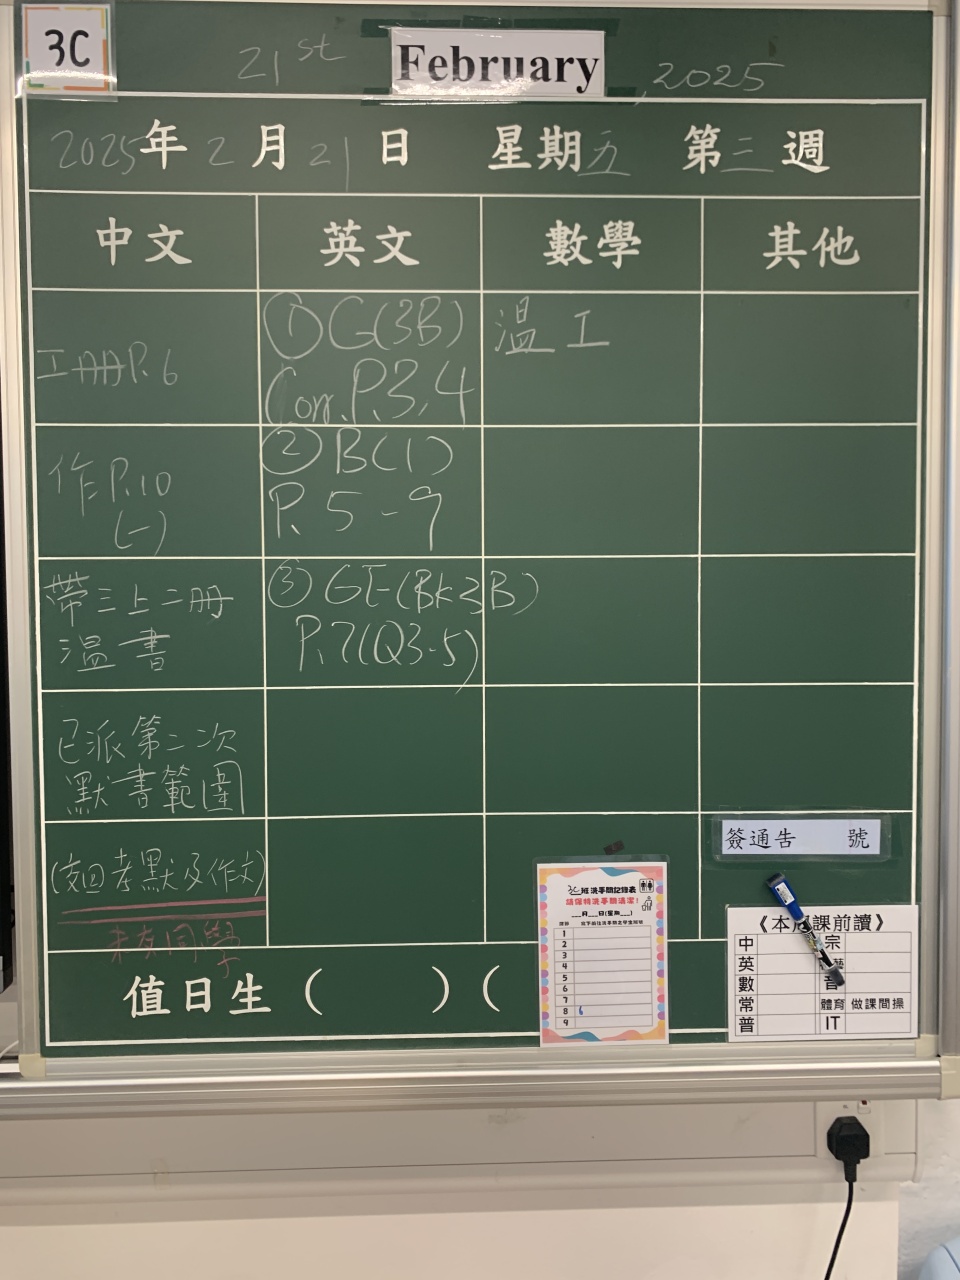 3C
21st February, 2025
2025年2月21日 星期五 第三週
中文 英文 數學 其他
工AAP.6
①G(3B)
Corr. P.3,4
溫工
作P.10
(一)
②B(1)
P. 5-9
帶三上二冊
溫書
③GE(Bk3B)
P.7(Q3-5)
已派第二次
默書範圍
(交回考默及作文)
未交同學
簽通告 號
值日生( )(
3C班洗手間記錄表
請保持洗手間清潔!
___月___日(星期___)
1
2
3
4
5
6
7
8 6
9
《本周課前讀》
中 宗
英
數
常 體育 做課間操
普 IT